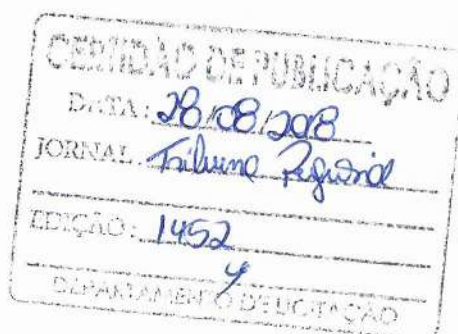 CERTIDÃO DE PUBLICAÇÃO
DATA: 28/08/2018
JORNAL: Tribuna Regional
EDIÇÃO: 1452
DEPARTAMENTO DE LICITAÇÃO